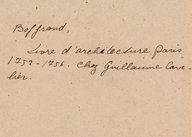 Boffrand,
Livre d'architecture Paris
1757-1756. Chez Guillaume Cave-
lier.